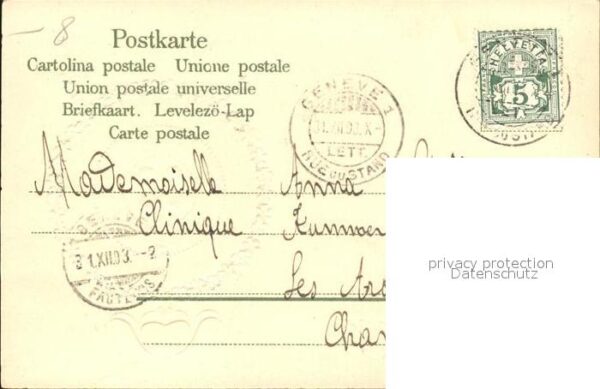 -8
Postkarte
Cartolina postale Unione postale
Union postale universelle
Briefkaart. Levelező-Lap
Carte postale
HELVETIA
5
GENÈVE 1
31.XII.03.X-
LETT.
RUE DU STAND
Mademoiselle Anna
Clinique
31.XII.03.-9
FACTEURS
Les
privacy protection
Datenschutz